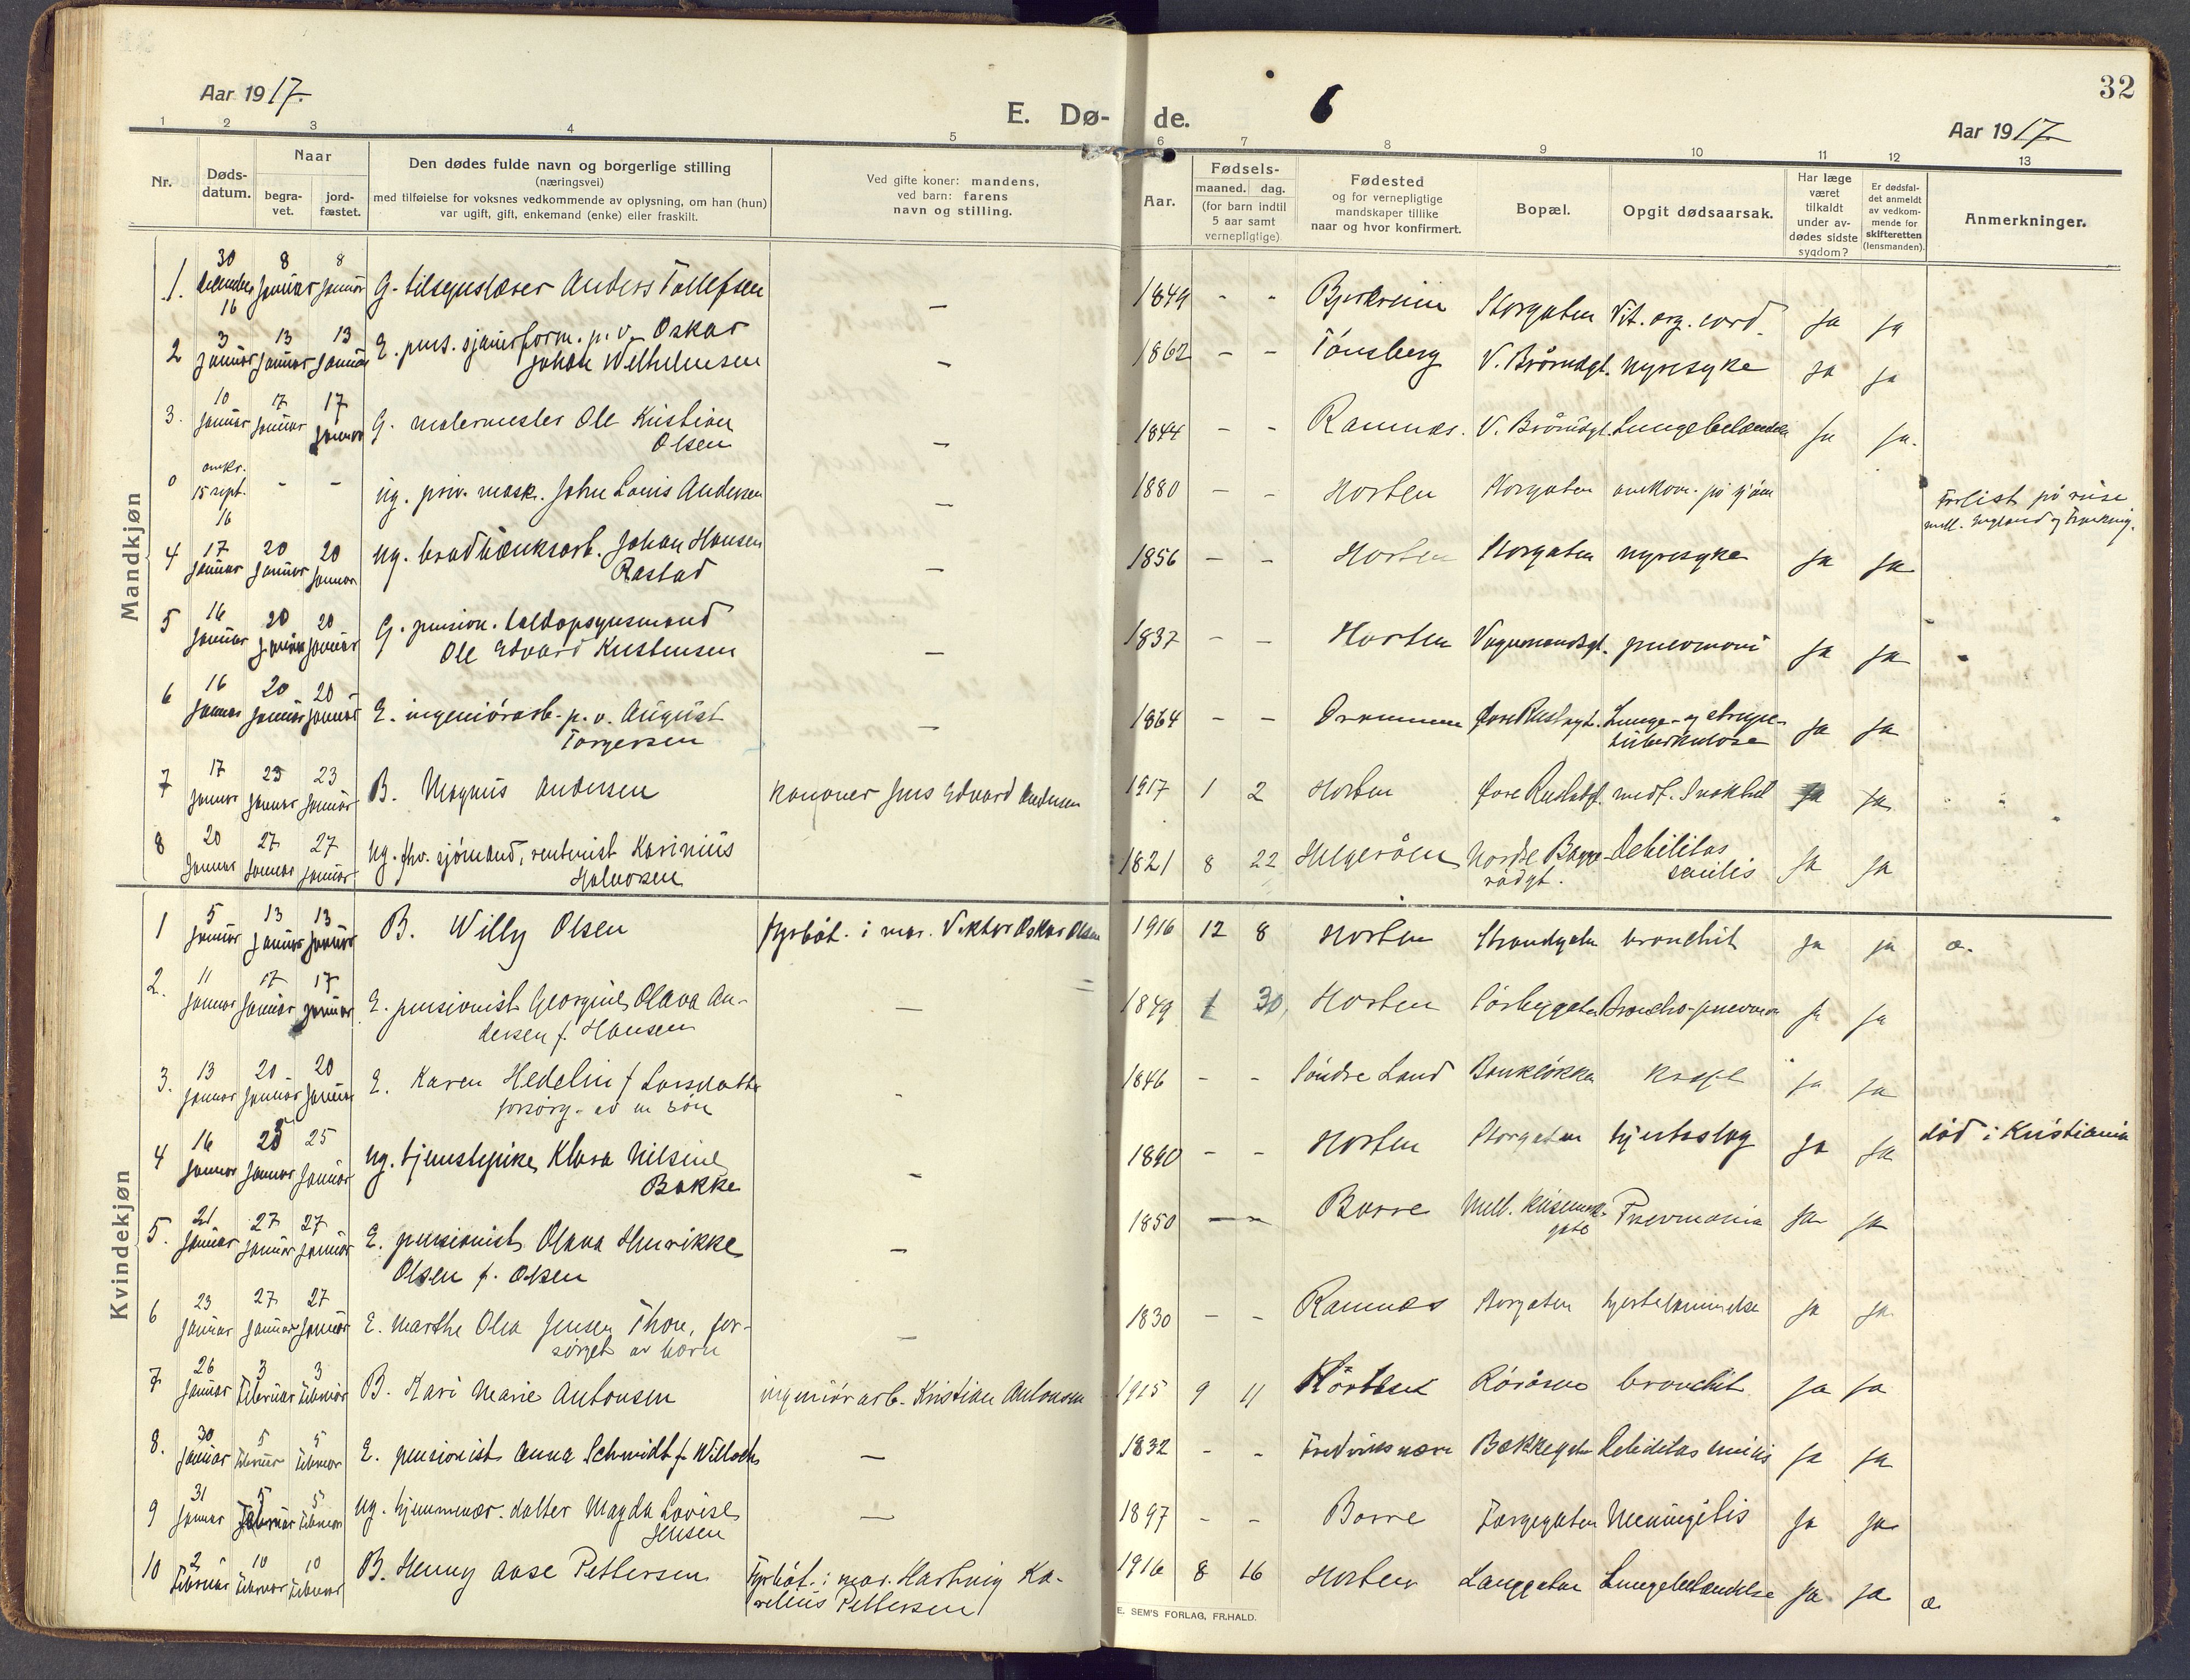 Aar 1917.
E. Dø- de.
6
32
Aar 1917
1 2 3 4 5 6 7 8 9 10 11 12 13
Nr.
Døds-
datum.
Naar
begra-
vet.
jord-
fæstet.
Den dødes fulde navn og borgerlige stilling
(næringsvei)
med tilføielse for voksnes vedkommende av oplysning, om han (hun)
var ugift, gift, enkemand (enke) eller fraskilt.
Ved gifte koner: mandens,
ved barn: farens
navn og stilling.
Aar.
Fødsels-
maaned. dag.
(for barn indtil
5 aar samt
vernepligtige)
Fødested
og for vernepligtige
mandskaper tillike
naar og hvor konfirmert.
Bopæl.
Opgit dødsaarsak.
Har læge
været
tilkaldt
under av-
dødes sidste
sygdom?
Er dødsfal-
det anmeldt
av vedkom-
mende for
skifteretten
(lensmanden).
Anmerkninger.
Mandkjøn
1. 30 december 16 8 januar 8 januar G. Anders Tollefsen — 1849 - - Storgaten Vit. org. cord. ja ja
2 3 januar 13 januar 13 januar E. p. v. Oskar
Johan Wilhelmsen — 1862 - - Tønsberg V. Brårudgt. nyresyke ja ja
3. 10 januar 17 januar 17 januar G. malermester Ole Kristian
Olsen — 1844 - - Ramnæs. V. Brårudgt. Lungebetændelse ja ja.
0 omkr. 15 sept. 16 - - ug. priv. mask. John Louis Andersen — 1880 - - Horten Storgaten omkom. på sjøen Forlist på reise
mell. England og Frankrig.
4 17 januar 20 januar 20 januar ug. Johan Hansen
Rastad — 1856 - - Horten Storgaten nyresyke ja ja
5 16 januar 20 januar 20 januar G. pension. toldopsynsmand
Ole Edvard Kristensen — 1837 - - Horten Vognmandsgt. pneomoni ja ja
6 16 januar 20 januar 20 januar E. ingeniørarb. p. v. August
Torgersen — 1864 - - Drammen Lunge- og strupe-
tuberkulose ja ja
7 17 januar 23 januar 23 januar B. Magnus Andersen kanoner Jens Edvard Andersen 1917 1 2 Horten medf. svakhet ja ja
8 20 januar 27 januar 27 januar ug. fhv. sjømand, rentenist Karinius
Halvorsen 1821 8 22 Helgeråen Nordre Bagge-
rødgt. debilitas
senilis ja ja
Kvindekjøn
1 5 januar 13 januar 13 januar B. Willy Olsen fyrbøt. i mar. Viktor Oskar Olsen 1916 12 8 Horten Strandgaten bronchit ja ja æ.
2. 11 januar 17 januar 17 januar E. pensionist Georgine Olava An-
dersen f. Hansen — 1849 1 30 Horten Broncho-pneumoni ja ja
3. 13 januar 20 januar 20 januar E. Karen Hedelin f. Larsdatter
forsørg. av en søn - 1846 - - Søndre Land Bankløkken kræft ja ja
4 16 januar 25 januar 25 januar ug. tjenestepike Klara Nilsine
Bakke - 1890 - - Horten Storgaten hjerteslag ja ja død i Kristiania
5. 21 januar 27 januar 27 januar E. pensionist Olava Henrikke
Olsen f. Olsen — 1850 - - Borre Pneumonia ja ja
6 23 januar 27 januar 27 januar E. Marthe Olea Jensen Thon, for-
sørget av børn — 1830 - - Ramnæs Storgaten ja ja
7 26 januar 3 februar 3 februar B. Kari Marie Antonsen ingeniørarb. Kristian Antonsen 1915 9 11 Røråsen bronchit ja ja
8. 30 januar 5 februar 5 februar E. pensionist Anna Schmidt f. Willoch — 1832 - - Fredriksværn Bakkegaten Debilitas senilis ja ja
9 31 januar 5 februar 5 februar ug. hjemmevær. datter Magda Lovise
Jensen — 1897 - - Borre Torvegaten Meningitis ja ja
10 2 februar 10 februar 10 februar B. Henny Aase Pettersen Fyrbøt. i mar. Hartvig Ka-
relius Pettersen 1916 8 16 Horten Langgaten Lungebetændelse ja ja æ
E. SEM'S FORLAG, FR.HALD.